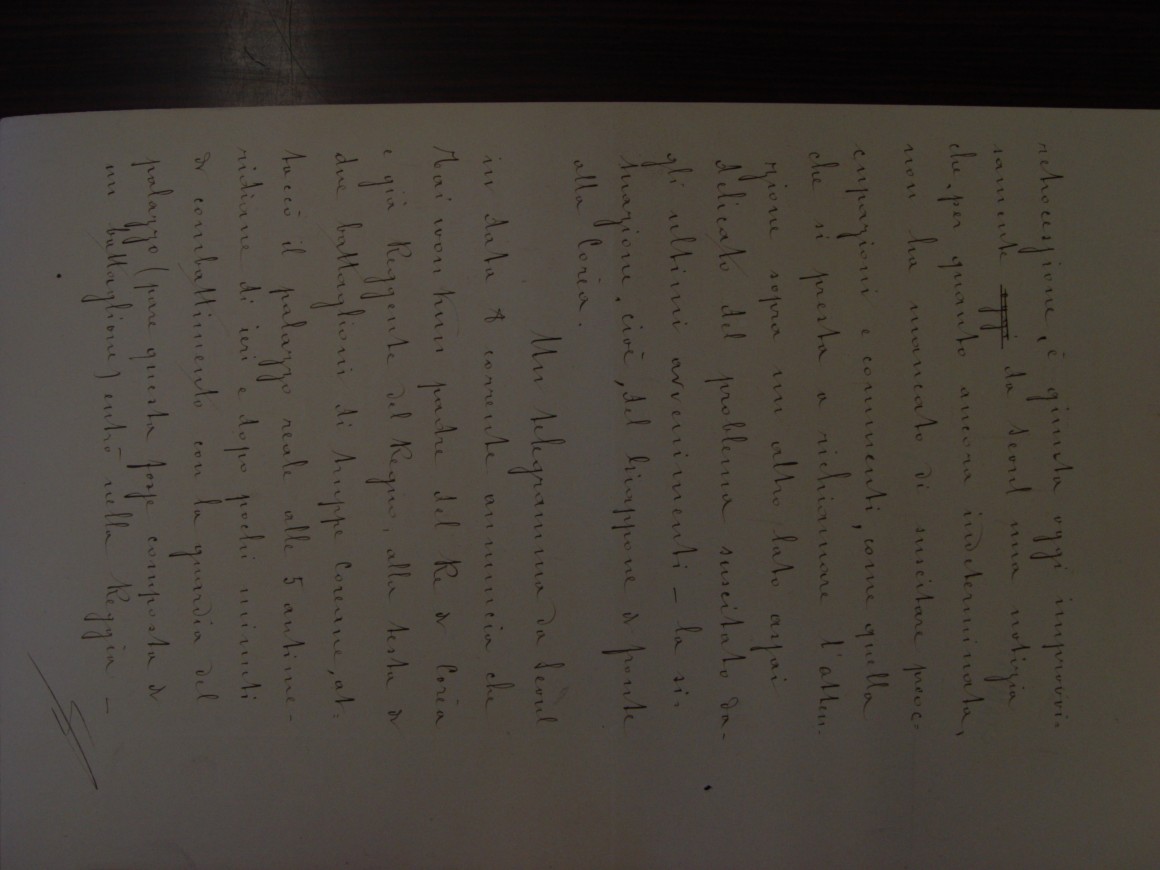 retrocessione, è giunta oggi improvvi-
samente oggi da Seoul una notizia
che, per quanto ancora indeterminata,
non ha mancato di suscitare preoc-
cupazioni e commenti, come quella
che si presta a richiamare l'atten-
zione sopra un altro lato assai
delicato del problema suscitato da-
gli ultimi avvenimenti - la si-
tuazione, cioè, del Giappone di fronte
alla Corea.
Un telegramma da Seoul
in data 8 corrente annuncia che
Tai won Kun padre del Re di Corea
e già Reggente del Regno, alla testa di
due battaglioni di truppe Coreane, at-
taccò il palazzo reale alle 5 antime-
ridiane di ieri e dopo pochi minuti
di combattimento con la guardia del
palazzo (pare questa fosse composta di
un battaglione) entrò nella Reggia -